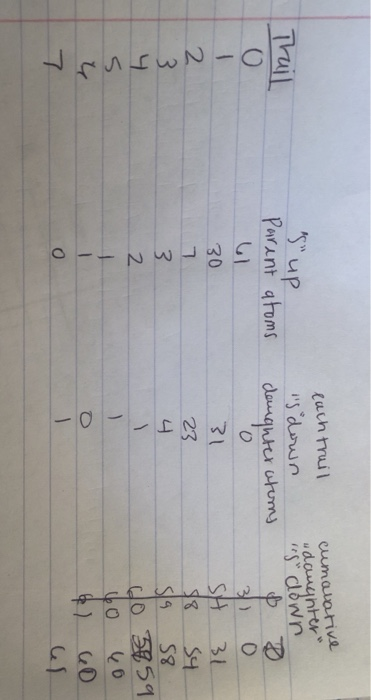 each trail cumalative
"s" up "s" down "daughter"
Trail Parent atoms daughter atoms "s" down
0 61 0 31 0
1 30 31 54 31
2 7 23 58 54
3 3 4 59 58
4 2 1 60 59
5 1 1 60 60
6 1 0 61 60
7 0 1 61